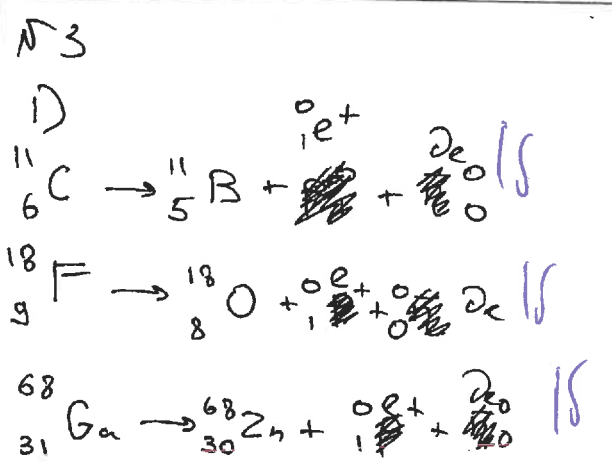 №3
1)
¹¹₆C → ¹¹₅B + ⁰₁e⁺ + νₑ ⁰₀ 1б
¹⁸₉F → ¹⁸₈O + ⁰₁e⁺ + ⁰₀ νₑ 1б
⁶⁸₃₁Ga → ⁶⁸₃₀Zn + ⁰₁e⁺ + νₑ ⁰₀ 1б